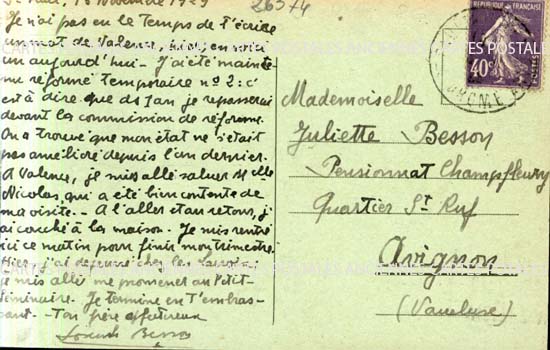 16 Novembre 1929
26374
Je n'ai pas eu le Temps de t'écrire
un mot de Valence, mais en voici
un aujourd'hui - J'ai été mainte
nu réformé temporaire n° 2: c'
est à dire que ds 1 an je repasserai
devant la commission de réforme.
On a trouvé que mon état ne s'était
pas amélioré depuis l'an dernier.
A Valence, je mis allé saluer Mlle
Nicolas, qui a été bien contente de
ma visite. - A l'aller et au retour, j'
ai couché à la maison. Je mis rentré
ici ce matin pour finir mon trimestre
Hier, j'ai dejeuné chez les
je mis allé me promener au Petit-
Séminaire. Je termine en t'embras-
sant - Ton frère affectueux
Joseph Besson
RÉPUBLIQUE FRANÇAISE
40c
POSTES
DRÔME
Mademoiselle
Juliette Besson
Pensionnat Champfleury
Quartier St Ruf
Avignon
(Vaucluse)
CARTES POSTALES ANCIENNES